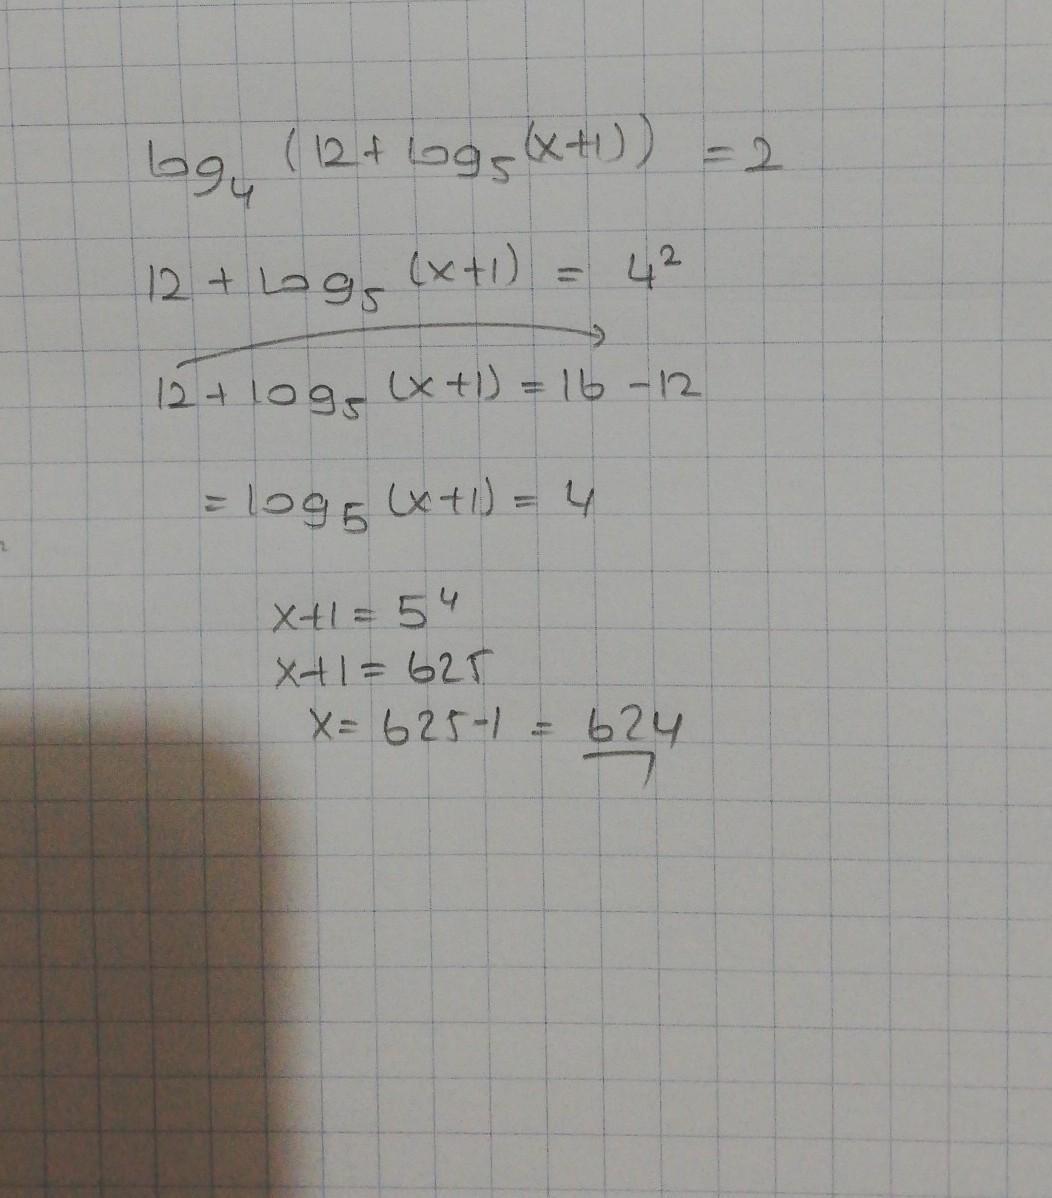 log₄ (12 + log₅ (x+1)) = 2
12 + log₅ (x+1) = 4²
12 + log₅ (x+1) = 16 - 12
= log₅ (x+1) = 4
x+1 = 5⁴
x+1 = 625
x = 625-1 = 624